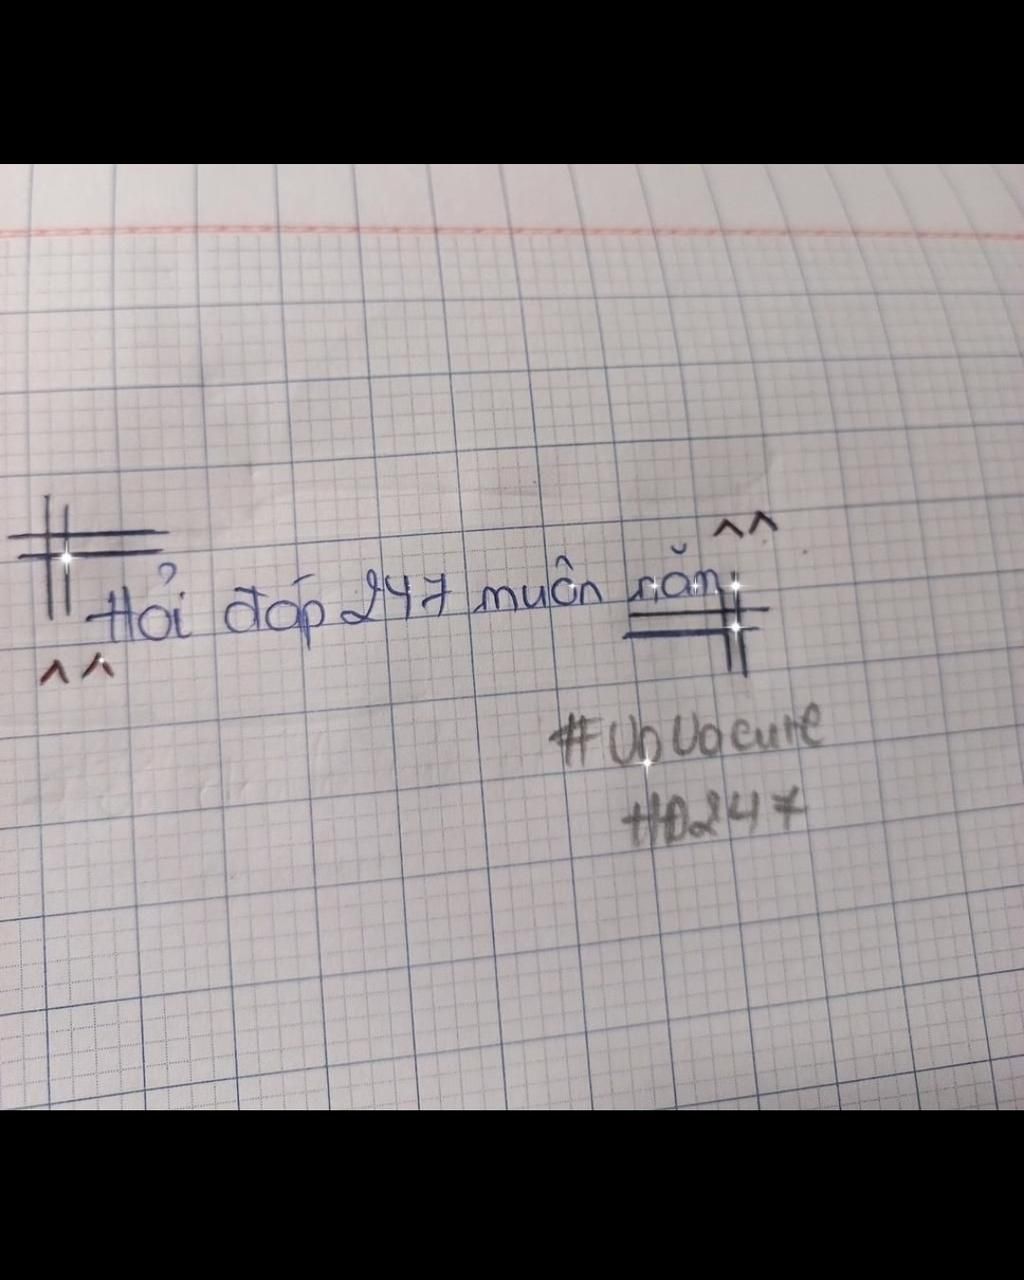 ^^
Hỏi đáp 247 muôn năm
^^
#UbUacute
HD247